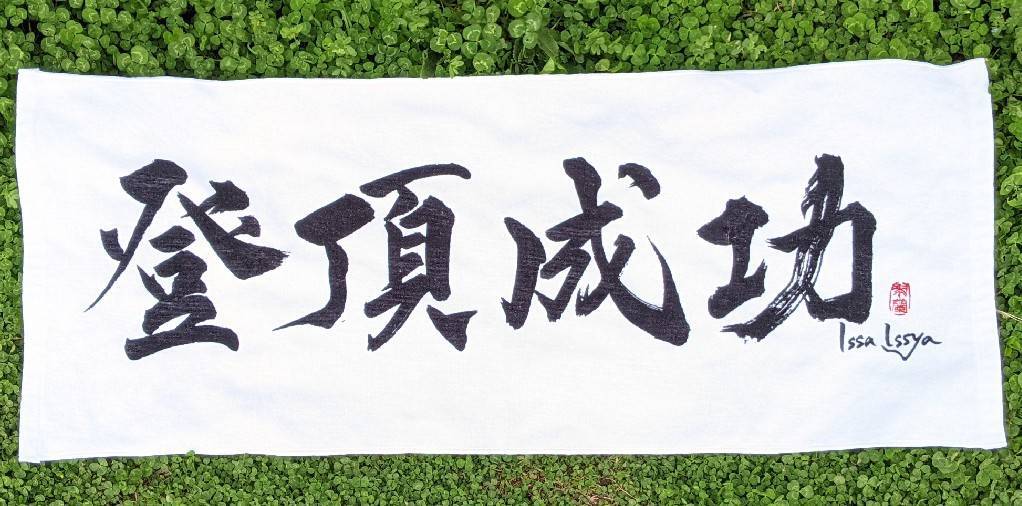 登頂成功
Issa Issya